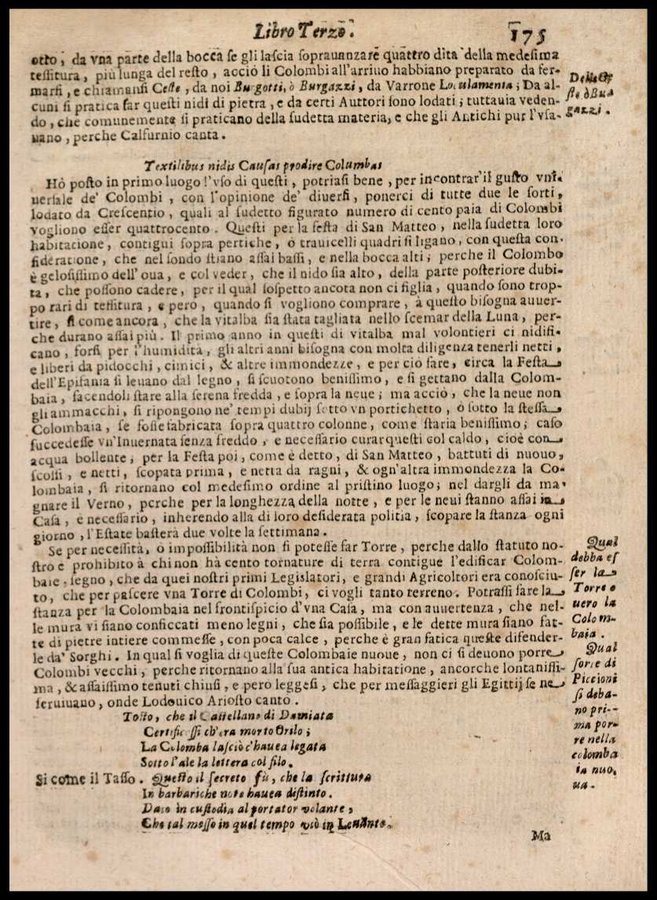 Libro Terzo.
175
otto, da vna parte della bocca se gli lascia sopraunnzare quattro dita della medesima
tessitura, più lunga del resto, acciò li Colombi all'arriuo habbiano preparato da fer-
marsi, e chiamansi Ceste, da noi Burgotti, ò Burgazzi, da Varrone Loculamenta; Da al-
cuni si pratica far questi nidi di pietra, e da certi Auttori sono lodati; tuttauia veden-
do, che comunemente si praticano della sudetta materia, e che gli Antichi pur l'vsa-
uano, perche Calfurnio canta.
Delle Ce
ste ò Bur
gazzi.
Textilibus nidis Causas prodire Columbas
Hò posto in primo luogo l'vso di questi, potriasi bene, per incontrar'il gusto vni-
uersale de' Colombi, con l'opinione de' diuersi, ponerci di tutte due le sorti,
lodato da Crescentio, quali al sudetto figurato numero di cento paia di Colombi
vogliono esser quattrocento. Questi per la festa di San Matteo, nella sudetta loro
habitatione, contigui sopra pertiche, ò trauicelli quadri si ligano, con questa con-
sideratione, che nel fondo stiano assai bassi, e nella bocca alti; perche il Colombo
è gelosissimo dell'oua, e col veder, che il nido sia alto, della parte posteriore dubi-
ta, che possono cadere, per il qual sospetto ancora non ci figlia, quando sono trop-
po rari di tessitura, e però, quando si vogliono comprare, à questo bisogna auuer-
tire, sì come ancora, che la vitalba sia stata tagliata nello scemar della Luna, per-
che durano assai più. Il primo anno in questi di vitalba mal volontieri ci nidifi-
cano, forsi per l'humidità, gli altri anni bisogna con molta diligenza tenerli netti,
e liberi da pidocchi, cimici, & altre immondezze, e per ciò fare, circa la Festa
dell'Epifania si leuano dal legno, si scuotono benissimo, e si gettano dalla Colom-
baia, facendoli stare alla serena fredda, e sopra la neue; ma acciò, che la neue non
gli ammacchi, si ripongono ne' tempi dubij sotto vn portichetto, ò sotto la stessa
Colombaia, se fosse fabricata sopra quattro colonne, come staria benissimo; caso
succedesse vn'Inuernata senza freddo, è necessario curar questi col caldo, cioè con
acqua bollente; per la Festa poi, come è detto, di San Matteo, battuti di nuouo,
scossi, e netti, scopata prima, e netta da ragni, & ogn'altra immondezza la Co-
lombaia, si ritornano col medesimo ordine al pristino luogo; nel dargli da ma-
gnare il Verno, perche per la longhezza della notte, e per le neui stanno assai in
Casa, è necessario, inherendo alla di loro desiderata politia, scopare la stanza ogni
giorno, l'Estate basterà due volte la settimana.
Se per necessità, ò impossibilità non si potesse far Torre, perche dallo statuto no-
stro è prohibito à chi non hà cento tornature di terra contigue l'edificar Colom-
baie, segno, che da quei nostri primi Legislatori, e grandi Agricoltori era conosciu-
to, che per pascere vna Torre di Colombi, ci vogli tanto terreno. Potrassi fare la
stanza per la Colombaia nel frontispicio d'vna Casa, ma con auuertenza, che nel-
le mura vi siano conficcati meno legni, che sia possibile, e le dette mura siano fat-
te di pietre intiere commesse, con poca calce, perche è gran fatica queste difender-
le da' Sorghi. In qual si voglia di queste Colombaie nuoue, non ci si deuono porre
Colombi vecchi, perche ritornano alla sua antica habitatione, ancorche lontanissi-
ma, & assaissimo tenuti chiusi, e però leggesi, che per messaggieri gli Egittij se ne
seruiuano, onde Lodouico Ariosto cantò.
Qual
debba es
ser la
Torre o
uero la
Colom-
baia.
Qual
sorte di
Piccioni
si deba-
no pri-
ma por-
re nella
colomba
ia nuo,
ua.
Tosto, che il Castellano di Damiata
Certificossi ch'era morto Orilo;
La Colomba lasciò c'hauea legata
Sotto l'ale la lettera col filo.
Si come il Tasso. Questo il secreto fù, che la scrittura
In barbariche note hauea distinto.
Dato in custodia al portator volante,
Che tal messo in quel tempo vsò in Leuante.
Ma